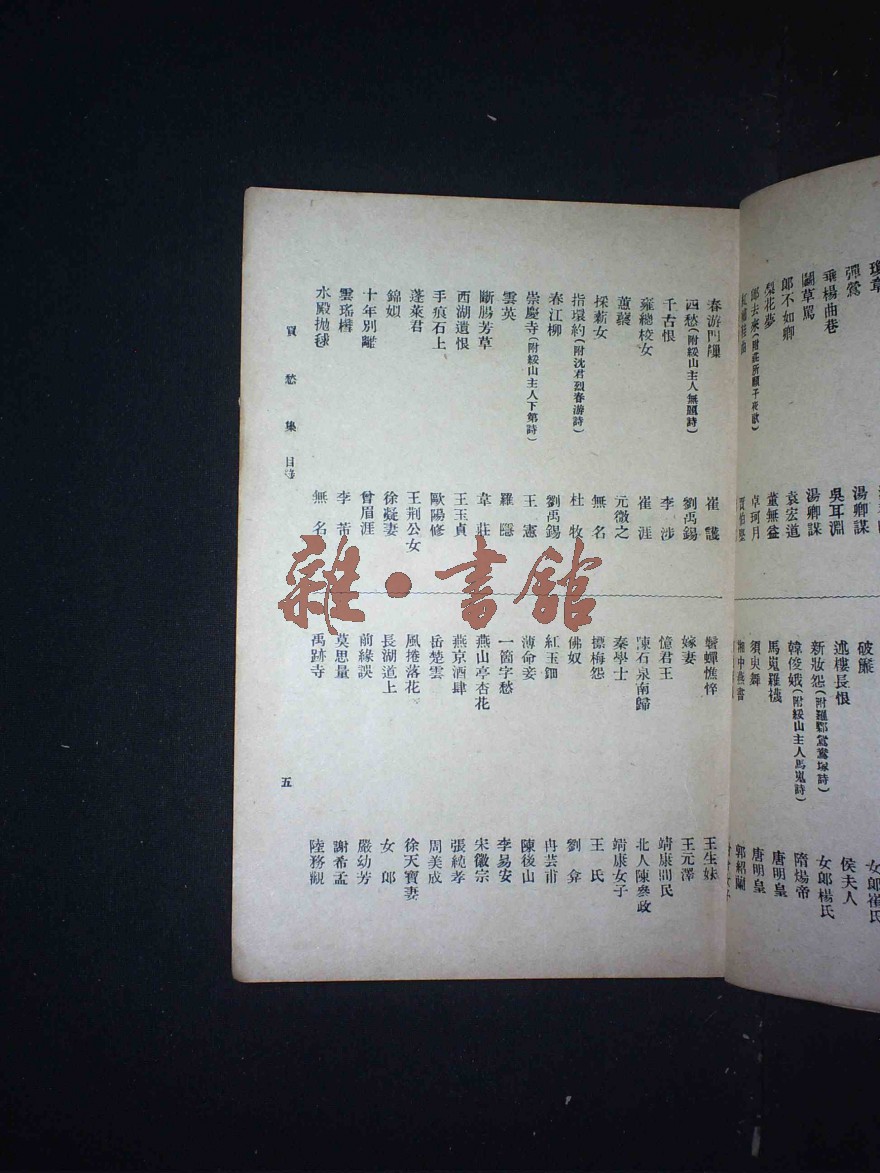 彈鶯 湯卿謀
垂楊曲巷 吳耳淵
鬬草罵 湯卿謀
郎不如卿 袁宏道
梨花夢 董無益
郎去來 卓珂月
破簾
述樓長恨 侯夫人
新妝怨 女郎楊氏
韓俊娥(附綏山主人馬嵬詩) 隋煬帝
馬嵬羅襪 唐明皇
須臾舞 唐明皇
郭紹蘭
春游門 崔護
四愁(附綏山主人無題詩) 劉禹錫
千古恨 李涉
雍總校女 崔涯
蕙 元微之
採薪女 無名
指環約(附沈君烈春游詩) 杜牧
春江柳 劉禹錫
崇慶寺(附綏山主人下第詩) 王憲
雲英 羅隱
斷腸芳草 韋莊
西湖遺恨 王玉貞
手痕石上 歐陽修
蓬萊君 王荆公女
錦 徐凝妻
十年別離 曾眉涯
雲瑤 李
水殿拋毬 無名
鬢蟬憔悴 王生妹
嫁妻 王元澤
憶君王 靖康間民
陳石泉南歸 北人陳參政
秦學士 靖康女子
摽梅怨 王氏
佛奴 劉弇
紅玉鈿 冉芸甫
薄命妾 陳後山
一箇字愁 李易安
燕山亭杏花 宋徽宗
燕京酒肆 張純孝
岳楚雲 周美成
風捲落花 徐天寶妻
長湖道上 女郎
前緣誤 嚴幼芳
莫思量 謝希孟
禹跡寺 陸務觀
買愁集 目錄
五
雜·書館